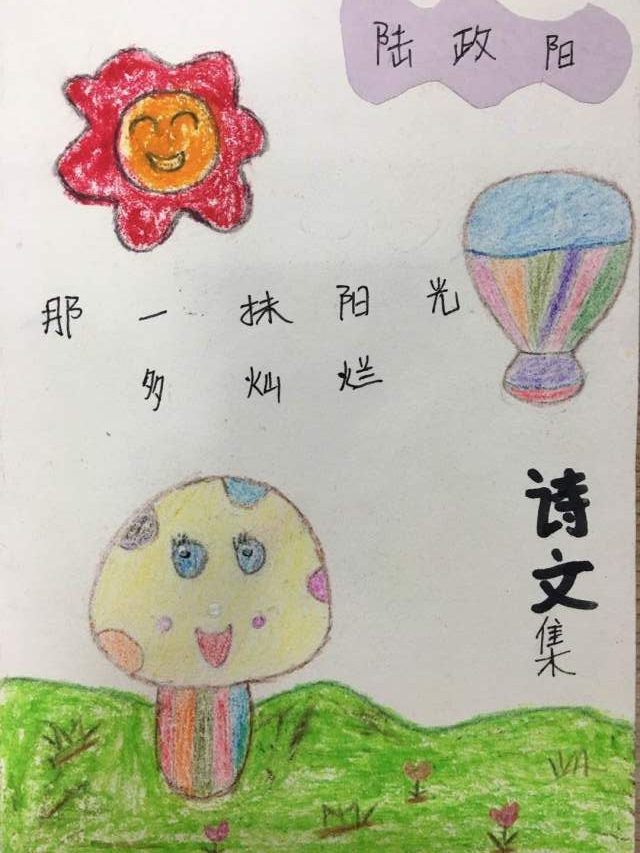 陆政阳
那一抹阳光
多灿烂
诗文集